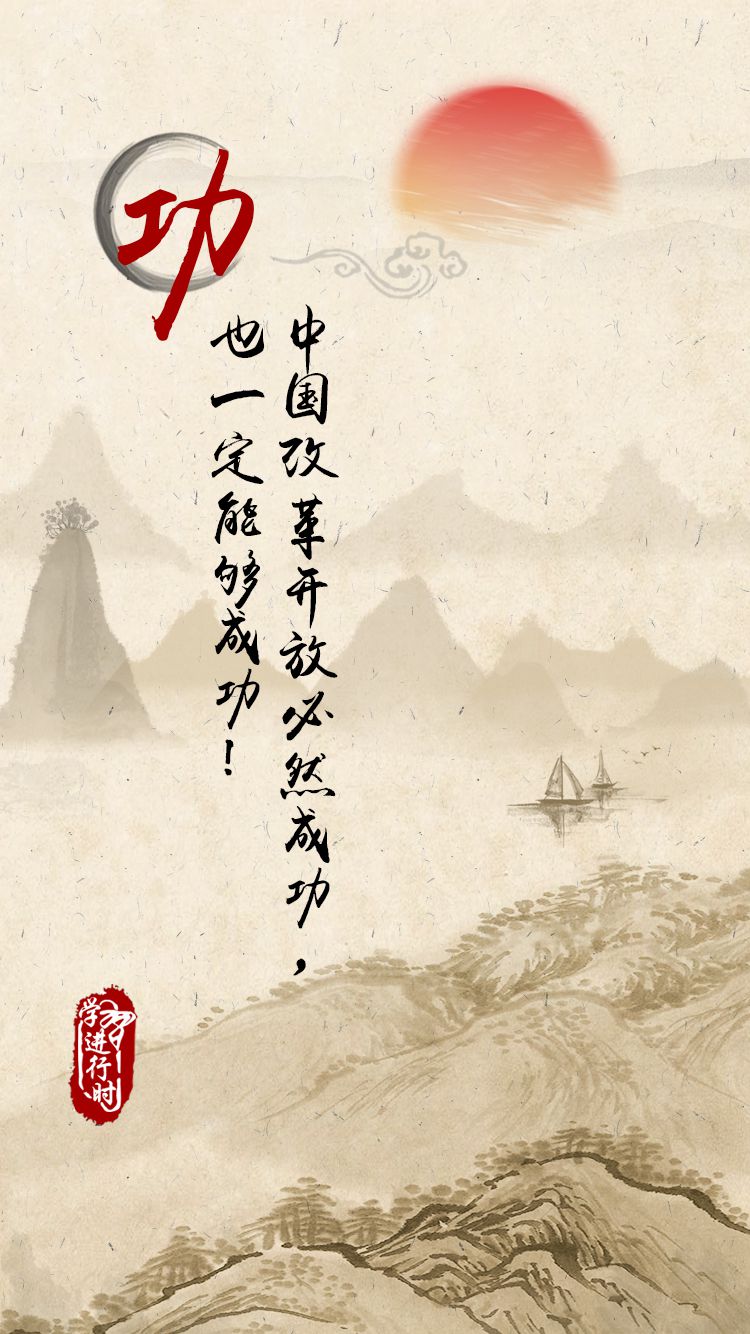 功
中国改革开放必然成功，
也一定能够成功！
学习进行时